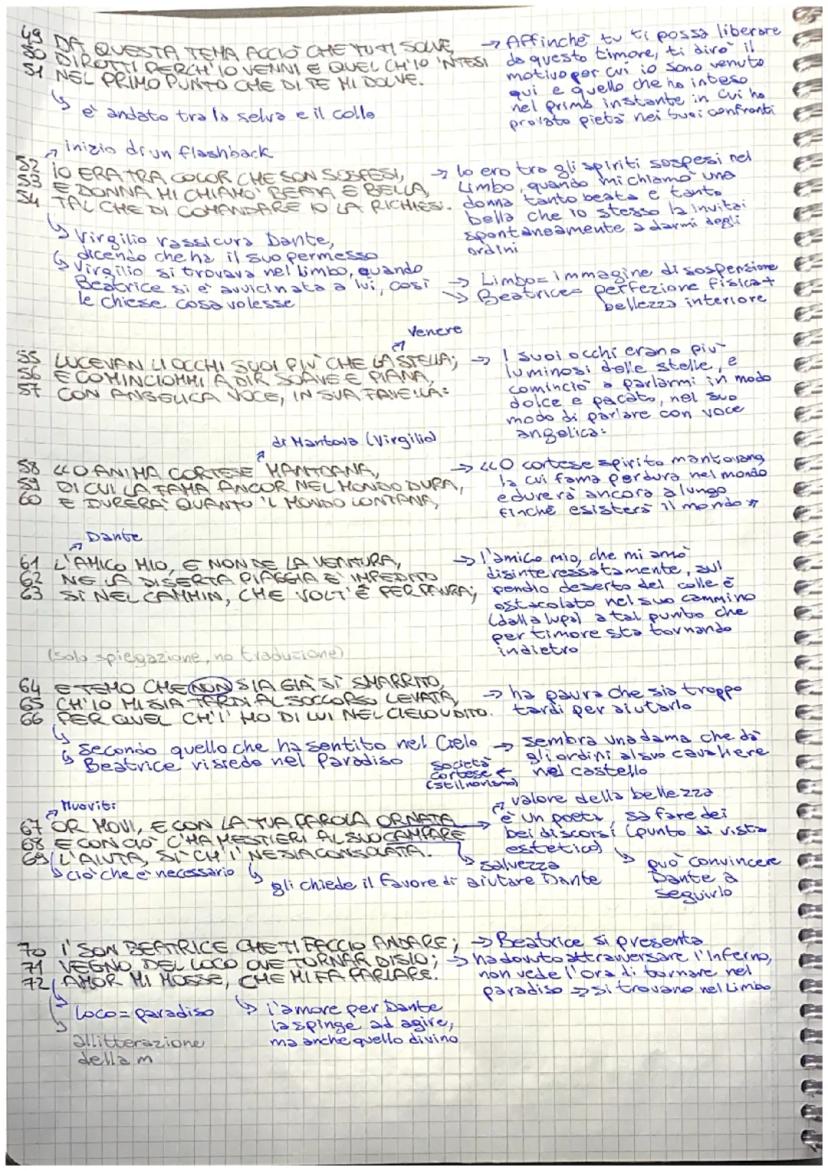 49 DA QUESTA TEMA ACCIÒ CHE TU TI SOLVE,
50 DIROTTI PERCH'IO VENNI E QUEL CH'IO 'NTESI
51 NEL PRIMO PUNTO CHE DI TE MI DOLVE.
→ Affinché tu ti possa liberare
da questo timore, ti dirò il
motivo per cui io sono venuto
qui e quello che ho inteso
nel primo instante in cui ho
prolato pietà nei tuoi confronti
è andato tra la selva e il colle
inizio di un flashback
52 IO ERA TRA COLOR CHE SON SOSPESI,
53 E DONNA MI CHIAMÒ BEATA E BELLA,
54 TAL CHE DI COMANDARE IO LA RICHIESI.
→ Io ero tra gli spiriti sospesi nel
Limbo, quando mi chiamò una
donna tanto beata e tanto
bella che io stesso la invitai
spontaneamente a darmi degli
ordini
Virgilio rassicura Dante,
dicendo che ha il suo permesso
Virgilio si trovava nel limbo, quando
Beatrice si è avvicinata a lui, così
le chiese cosa volesse
→ Limbo = immagine di sospensione
→ Beatrice = perfezione fisica +
bellezza interiore
Venere
55 LUCEVAN LI OCCHI SUOI PIÙ CHE LA STELLA;
56 E COMINCIOMMI A DIR SOAVE E PIANA,
57 CON ANGELICA VOCE, IN SUA FAVELLA:
→ I suoi occhi erano più
luminosi delle stelle, e
cominciò a parlarmi in modo
dolce e pacato, nel suo
modo di parlare con voce
angelica:
di Mantova (Virgilio)
58 «O ANIMA CORTESE MANTOANA,
59 DI CUI LA FAMA ANCOR NEL MONDO DURA,
60 E DURERÀ QUANTO 'L MONDO LONTANA,
→ «O cortese spirito mantovano
la cui fama perdura nel mondo
e durerà ancora a lungo
finché esisterà il mondo»
Dante
61 L'AMICO MIO, E NON DE LA VENTURA,
62 NE LA DISERTA PIAGGIA È IMPEDITO
63 SÌ NEL CAMMIN, CHE VOLT'È PER PAURA;
→ l'amico mio, che mi amò
disinteressatamente, sul
pendio deserto del colle è
ostacolato nel suo cammino
(dalla lupa) a tal punto che
per timore sta tornando
indietro
(solo spiegazione, no traduzione)
64 E TEMO CHE NON SIA GIÀ SÌ SMARRITO,
65 CH'IO MI SIA TARDI AL SOCCORSO LEVATA,
66 PER QUEL CH'I' HO DI LUI NEL CIELO UDITO.
→ ha paura che sia troppo
tardi per aiutarlo
Secondo quello che ha sentito nel Cielo
Beatrice risiede nel Paradiso
→ sembra una dama che dà
gli ordini al suo cavaliere
nel castello
società
cortese ←
(stilnovismo)
Muoviti
67 OR MOVI, E CON LA TUA PAROLA ORNATA
68 E CON CIÒ C'HA MESTIERI AL SUO CAMPARE
69 L'AIUTA, SÌ CH'I' NE SIA CONSOLATA.
valore della bellezza
è un poeta, sa fare dei
bei discorsi (punto di vista
estetico)
salvezza
può convincere
Dante a
seguirlo
ciò che è necessario
gli chiede il favore di aiutare Dante
70 I' SON BEATRICE CHE TI FACCIO ANDARE;
71 VEGNO DEL LOCO OVE TORNAR DISIO;
72 AMOR MI MOSSE, CHE MI FA PARLARE.
→ Beatrice si presenta
→ ha dovuto attraversare l'Inferno,
non vede l'ora di tornare nel
paradiso → si trovano nel Limbo
loco = paradiso
l'amore per Dante
la spinge ad agire,
ma anche quello divino
allitterazione
della m